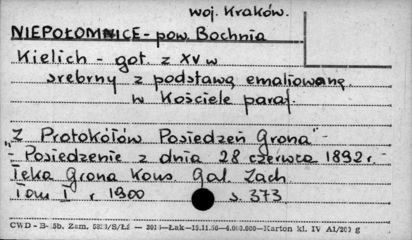 woj. Kraków.
NIEPOŁOMNICE - pow. Bochnia
Kielich - got. z XV w
srebrny z podstawą emaliowaną.
w Kościele paraf.
"Z Protokółów Posiedzeń Grona" -
- Posiedzenie z dnia 28 czerwca 1892 r. -
Teka Grona Kons Gal. Zach
Tom I r 1900 s. 373
CWD - B- Zam. — Łak — 15.11.50 — 4.000.000 — Karton kl. IV A1/203 g